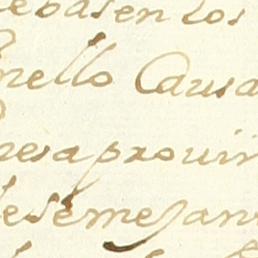 basen los
nello Causa
nes aprouin
desemejan